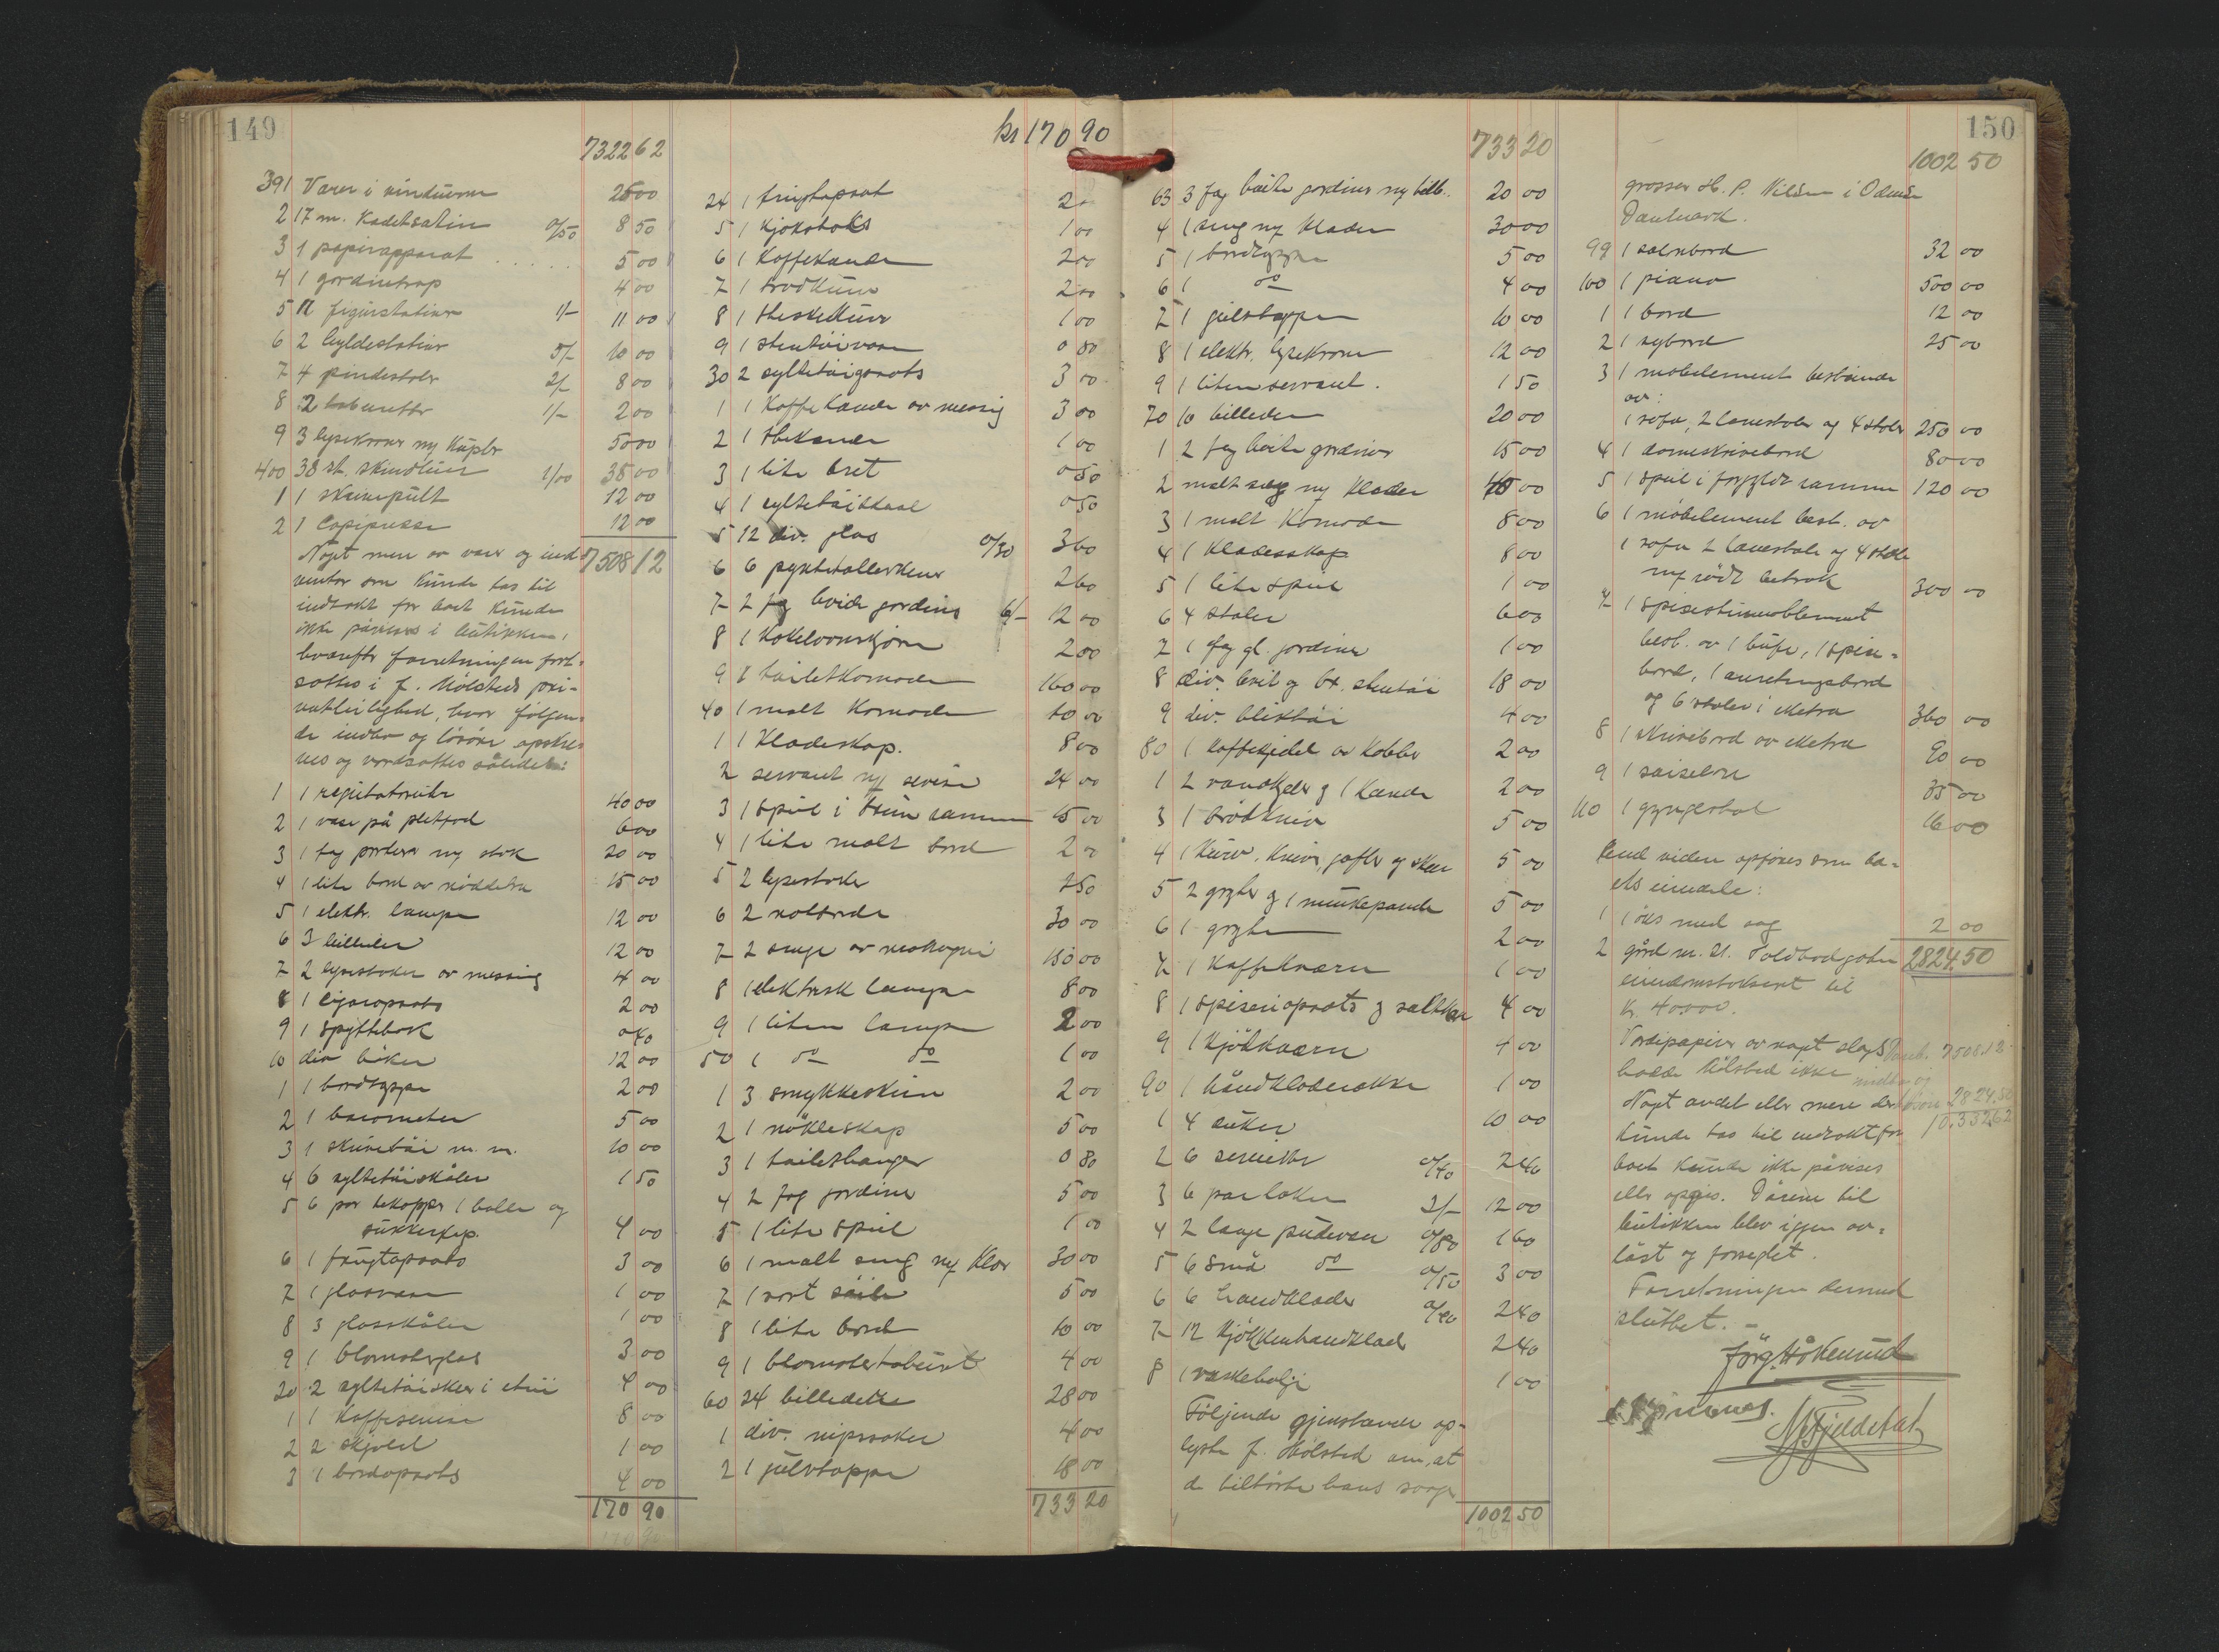 149
7322 62
391 Varer i vinduerne 25 00
2 17 m. Kadetsatin 0/50 8 50
3 1 papirapparat 5 00
4 1 gardintrap 4 00
5 11 figurstativer 1/- 11 00
6 2 hyldestativer 5/- 10 00
7 4 pindestoler 2/- 8 00
8 2 taburetter 1/- 2 00
9 3 lysekroner m/ kupler 50 00
400 38 st. skindluer 1/00 38 00
1 1 skrivepult 12 00
2 1 Copipresse 12 00
7508 12
Noget mere av varer og ind-
ventar som kunde tas til
indtækt for boet kunde
ikke påvises i butikken,
hvorefter forretningen fort-
sattes i f. Hølsteds pri-
vatleilighed, hvor følgen-
de indbo og løsøre opskre-
ves og værdsattes således:
1 1 regulatoruhr 40 00
2 1 vase på pletfod 6 00
3 1 fag portierer m/ stok 20 00
4 1 lite bord av nøddetræ 15 00
5 1 elektr. lampe 12 00
6 3 billeder 12 00
7 2 lysestaker av messing 4 00
8 1 cigaropsats 2 00
9 1 spyttebak 0 40
10 div bøker 12 00
1 1 bordteppe 2 00
2 1 barometer 5 00
3 1 skrivetøi m. m. 10 00
4 6 syltetøiskåler 1 50
5 6 par tekopper 1 bolle og
sukkerkop. 4 00
6 1 frugtopsats 3 00
7 1 glasvase 1 00
8 3 glasskåler 1 00
9 1 blomsterglas 3 00
20 2 syltetøiskeer i etui 4 00
1 1 Kaffeservise 8 00
2 2 skjold 1 00
3 1 bordopsats 4 00
170 90
kr 170 90
24 1 frugtopsats 2 00
5 1 kjøkstol 1 00
6 1 Kaffekande 2 00
7 1 brødkurv 2 00
8 1 theskekurv 1 00
9 1 stentøivase 0 80
30 2 syltetøiopsats 3 00
1 1 Kaffekande av messing 3 00
2 1 thekande 1 00
3 1 lite bret 0 50
4 1 syltetøiskaal 0 50
5 12 div. glas 0/30 3 60
6 6 pyntetallerkener 2 60
7 2 fag hvide gardiner 6/- 12 00
8 1 kakelovnskjerm 2 00
9 1 toiletkomode 160 00
40 1 malt komode 10 00
1 1 klædeskap. 8 00
2 servant m/ servise 24 00
3 1 speil i brun ramme 15 00
4 1 lite malt bord 2 00
5 2 lysestaker 2 50
6 2 natborde 30 00
7 2 senge av mahogni 150 00
8 1 elektrisk lampe 8 00
9 1 liten lampe 2 00
50 1 do do 1 00
1 3 smykkeskrin 2 00
2 1 nøkleskap 5 00
3 1 toilethanger 0 80
4 2 fag gardiner 5 00
5 1 lite speil 1 00
6 1 malt seng m/ klær 30 00
7 1 sort søile 5 00
8 1 lite bord 10 00
9 1 blomstertaburet 4 00
60 24 billeder 28 00
1 div. nipssaker 4 00
2 1 gulvtæppe 18 00
733 20
733 20
63 3 fag hvite gardiner m/ tilb. 20 00
4 1 seng m/ klæder 30 00
5 1 bordteppe 5 00
6 1 do 4 00
7 1 gulvtæppe 10 00
8 1 elektr. lysekrone 12 00
9 1 liten servant. 1 50
70 10 billeder 20 00
1 2 fag hvite gardiner 15 00
2 malt seng m/ klæder 40 00
3 1 malt komode 8 00
4 1 klædesskap 8 00
5 1 lite speil 1 00
6 4 stoler 6 00
7 1 fag gl. gardiner 1 00
8 div. hvit og bl. stentøi 18 00
9 div. bliktøi 4 00
80 1 kaffekjedel av kobber 2 00
1 2 vandkjeler og 1 kande 2 00
3 1 brødkniv 5 00
4 1 kurv. kniver, gafler og skeer 5 00
5 2 gryter og 1 munkepande 5 00
6 1 gryte 2 00
7 1 kaffekværn 1 00
8 1 spiseriopsats og saltkar 4 00
9 1 kjødkværn 4 00
90 1 håndklæderække 1 00
1 4 duker 10 00
2 6 servietter 0/40 2 40
3 6 par laken 2/- 12 00
4 2 lange pudevar 0/80 1 60
5 6 små do 0/50 3 00
6 6 handklæder 0/40 2 40
7 12 kjøkkenhandklæder 2 40
8 1 vaskebalje 1 00
Følgende gjenstande op-
lyste f. Hølsted om, at
de tilhørte hans svoger
1002 50
150
1002 50
grosser H. P. Nilsen i Odense
Danmark.
99 1 salonbord 32 00
100 1 piano 500 00
1 1 bord 12 00
2 1 sybord 25 00
3 1 møbelement bestående
av:
1 sofa, 2 lænestoler og 4 stoler 250 00
4 1 dameskrivebord 80 00
5 1 speil i forgyldt ramme 120 00
6 1 møbelement best. av
1 sofa 2 lænestole og 4 stole
m/ rødt betræk 300 00
7 1 spisestuemøblement
best. av 1 bufe, 1 spise-
bord, 1 anretningsbord
og 6 stoler i eketræ 360 00
8 1 skrivebord av eketræ 90 00
9 1 chaiselon 35 00
110 1 gyngestol 16 00
End videre opføres som bo-
ets eiendele:
1 1 øks med sag 2 00
2 gård nr. 21. Toldbodgaten 2824.50
eiendomstaksert til
kr. 40000.
Værdipapirer av noget slags
hadde Hølsted ikke
Vareb. 7508.12
indbo og
løsøre 2824.50
10.332.62
Noget andet eller mere der
kunde tas til indtækt for
boet kunde ikke påvises
eller opgis. Dørene til
butikken blev igjen av-
låst og forseglet.
Forretningen dermed
sluttet. -